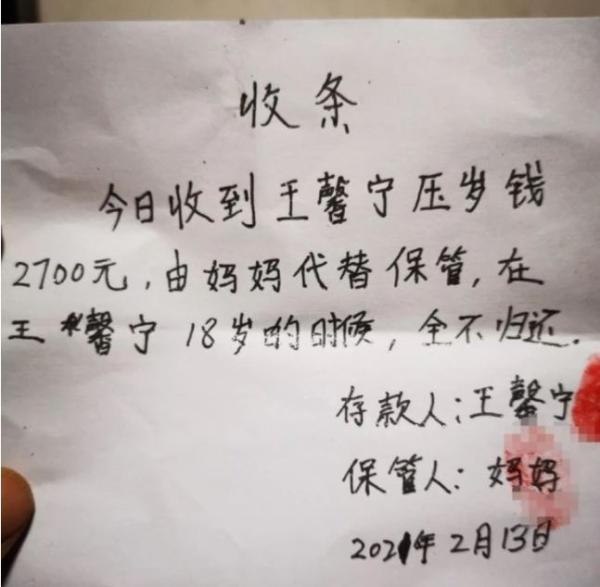 收条
今日收到王馨宁压岁钱
2700元，由妈妈代替保管，在
王馨宁18岁的时候，全不归还．
存款人：王馨宁
保管人：妈妈
2021年2月13日